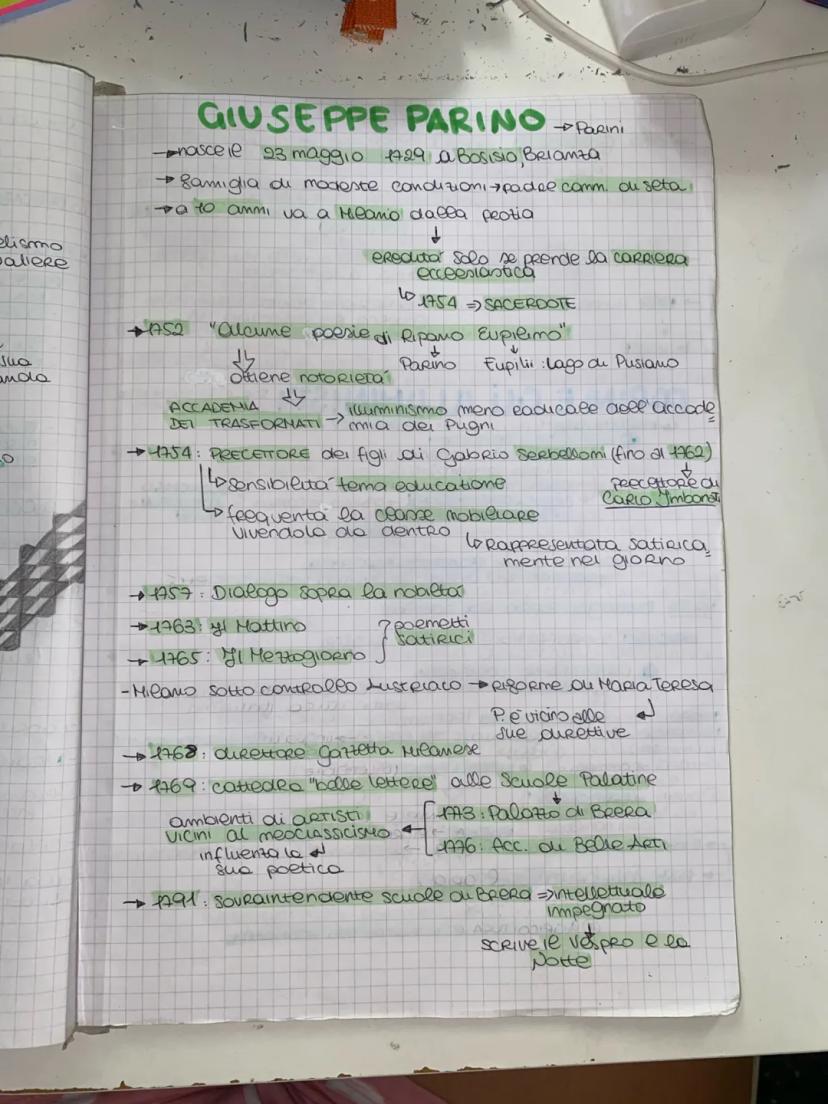 GIUSEPPE PARINO → Parini
→ nasce il 23 maggio 1729 a Bosisio, Brianza
→ famiglia di modeste condizioni → padre comm. di seta
→ a 10 anni va a Milano dalla protia
↓
eredità solo se prende la CARRIERA
eccelsiastica
↳ 1754 ⇒ SACERDOTE
→ 1752 "Alcune poesie di Ripano Eupilino"
Parino Eupilii: lago di Pusiano
ottiene notorietà
ACCADEMIA
DEI TRASFORMATI → illuminismo meno radicale dell'accade
mia dei Pugni
→ 1754: PRECETTORE dei figli di Gabrio Serbelloni (fino al 1762)
↳ sensibilità tema educazione
precettore di
Carlo Imbonati
↳ frequenta la classe nobiliare
vivendola da dentro
↳ RAPPRESENTATA SATIRICA
mente nel giorno
→ 1757: Dialogo sopra la nobiltà
→ 1763: Il Mattino
→ 1765: Il Mezzogiorno
poemetti
satirici
- Milano sotto controllo Austriaco → RIFORME di MARIA TERESA
P. è vicino alle
sue direttive
→ 1768: direttore gazzetta Milanese
→ 1769: cattedra "belle lettere" alle Scuole Palatine
1773: Palazzo di BRERA
1776: Acc. di Belle Arti
ambienti di artisti
vicini al neoclassicismo
influenza la
sua poetica
→ 1791: sovraintendente scuole di BRERA ⇒ intellettuale
impegnato
SCRIVE il Vespro e la
Notte
elismo
aliere
sua
ando
o